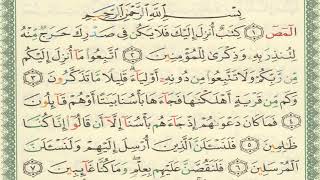 بِسْمِ اللَّهِ الرَّحْمَٰنِ الرَّحِيمِ
الٓمٓصٓ ١ كِتَٰبٌ أُنزِلَ إِلَيْكَ فَلَا يَكُن فِي صَدْرِكَ حَرَجٌ مِّنْهُ
لِتُنذِرَ بِهِۦ وَذِكْرَىٰ لِلْمُؤْمِنِينَ ٢ ٱتَّبِعُوا۟ مَآ أُنزِلَ إِلَيْكُم
مِّن رَّبِّكُمْ وَلَا تَتَّبِعُوا۟ مِن دُونِهِۦٓ أَوْلِيَآءَ قَلِيلًا مَّا تَذَكَّرُونَ ٣
وَكَم مِّن قَرْيَةٍ أَهْلَكْنَٰهَا فَجَآءَهَا بَأْسُنَا بَيَٰتًا أَوْ هُمْ قَآئِلُونَ
٤ فَمَا كَانَ دَعْوَىٰهُمْ إِذْ جَآءَهُم بَأْسُنَآ إِلَّآ أَن قَالُوٓا۟ إِنَّا كُنَّا
ظَٰلِمِينَ ٥ فَلَنَسْـَٔلَنَّ ٱلَّذِينَ أُرْسِلَ إِلَيْهِمْ وَلَنَسْـَٔلَنَّ
ٱلْمُرْسَلِينَ ٦ فَلَنَقُصَّنَّ عَلَيْهِم بِعِلْمٍ وَمَا كُنَّا غَآئِبِينَ ٧